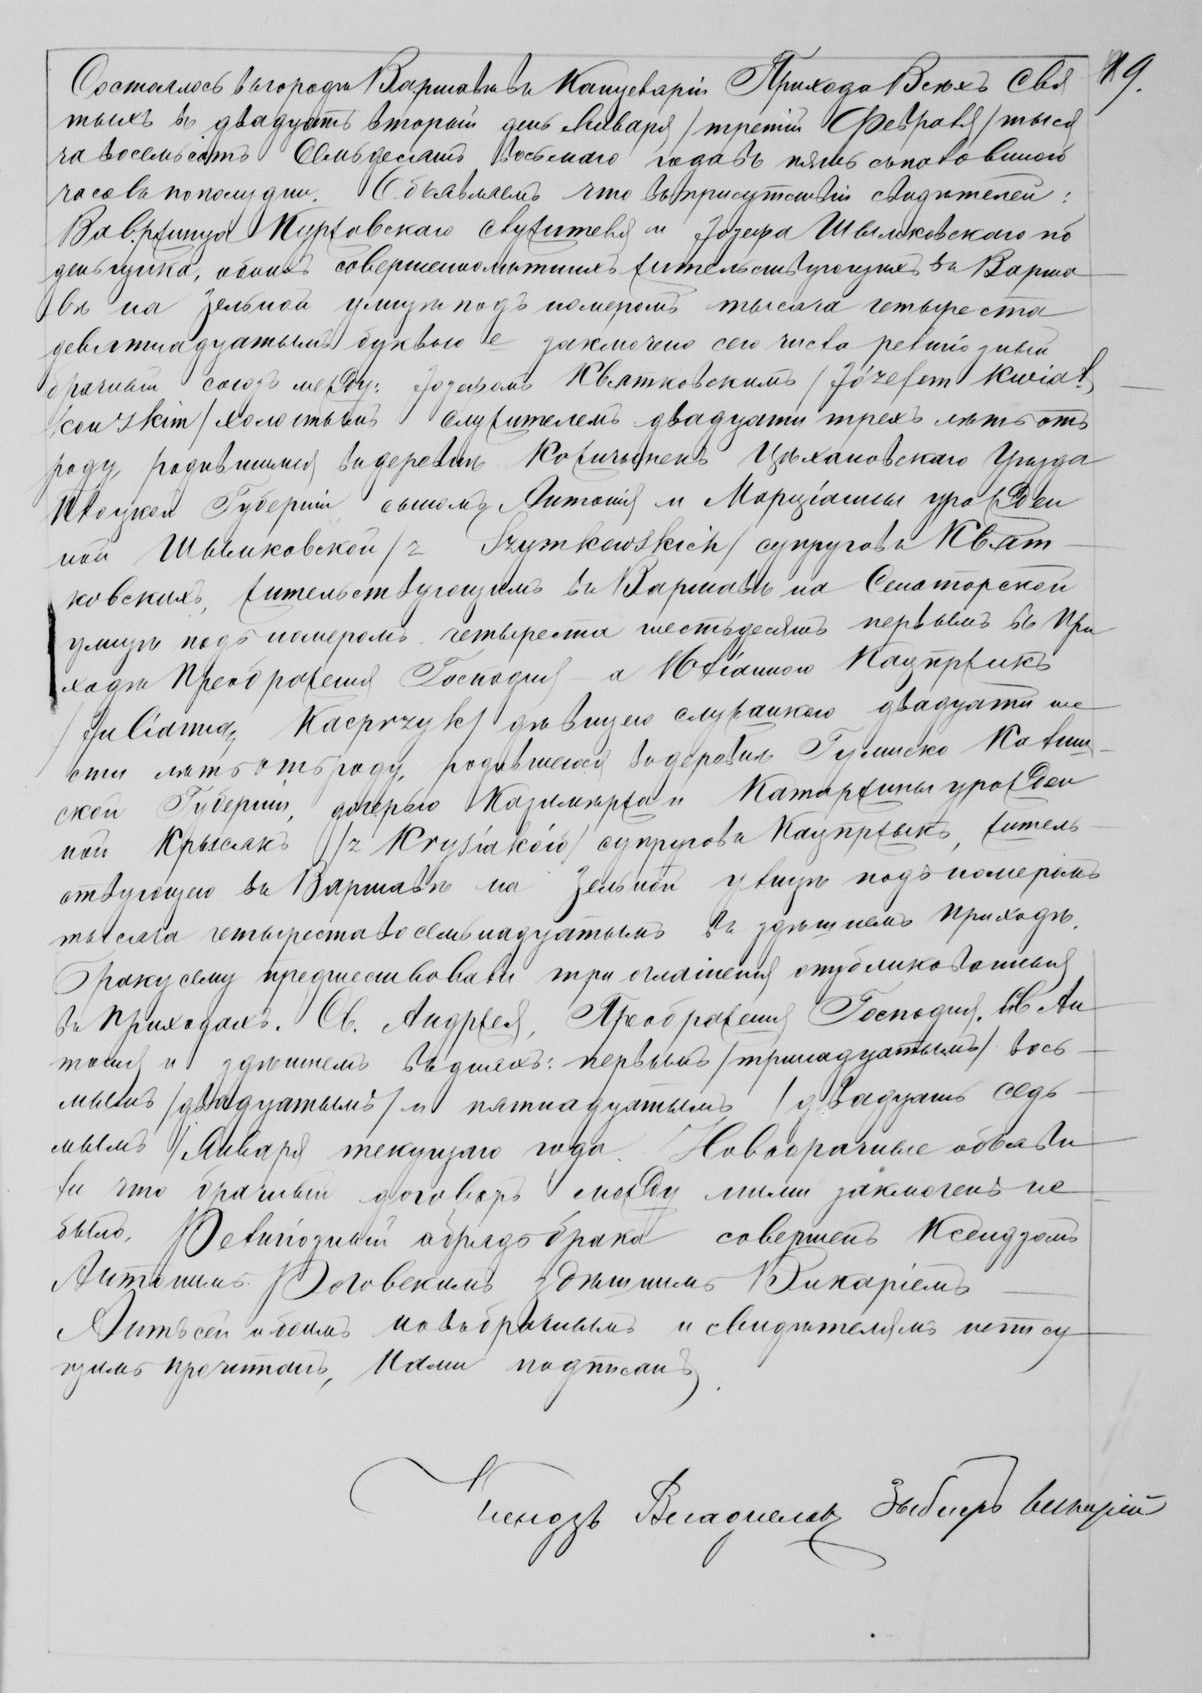 89.
Состоялось въ городѣ Варшавѣ въ Канцеляріи Прихода Всѣхъ Свя
тыхъ въ двадцать второй день Января /третій Февраля/ тыся
ча восемьсотъ Семьдесятъ восьмаго года въ пять съ половиною
часовъ пополудни. Объявляемъ что въ присутствіи свидѣтелей:
Ваврженца Куржавскаго служителя и Іозефа Шымковскаго по
деньщика, обоихъ совершеннолѣтнихъ жительствующихъ въ Варша
вѣ на Зельной улицѣ подъ номеромъ тысяча четыреста
девятнадцатымъ буквою е заключено сего числа религіозный
брачный союзъ между: Іозефомъ Квятковскимъ /Józefem Kwiat
kowskim/ холостымъ служителемъ двадцати трехъ лѣтъ отъ
роду, родившимся въ деревнѣ Цѣхановскаго Уѣзда
Плоцкой Губерніи сыномъ Антонія и Марціанны урожден
ной Шымковской /z Szymkowskich/ супруговъ Квят
ковскихъ, жительствующимъ въ Варшавѣ на Сенаторской
улицѣ подъ номеромъ четыреста шестьдесятъ первымъ въ При
ходѣ Преображенія Господня а Юліанною Кацпржикъ
/Julianną Kacprzyk/ дѣвицею служанкою двадцати ше
сти лѣтъ отъ роду, родившеюся въ деревнѣ Гулинско Калиш
ской Губерніи, дочерью Казимѣржа и Катаржины урожден
ной Крысякъ /z Krysiaków/ супруговъ Кацпржыкъ, житель
ствующею въ Варшавѣ на Зельной улицѣ подъ номеромъ
тысяча четыреста восемьнадцатымъ въ здѣшнемъ приходѣ.
Браку сему предшествовали три оглашенія опубликованныя
въ Приходахъ. Св. Андржея, Преображенія Господня, Св Ан
тонія и здѣшнемъ въ дняхъ: первымъ /тринадцатымъ/ вось
мымъ /двадцатымъ/ и пятнадцатымъ /двадцать седь
мымъ/ Января текущаго года. Новобрачные объяви
ли что брачный договоръ между ними заключенъ не
былъ. Религіозный обрядъ брака совершенъ Ксендзомъ
Антонимъ Роговскимъ здѣшнимъ Викаріемъ
Актъ сей обоимъ новобрачнымъ и свидѣтелямъ непису
щимъ прочитанъ, Нами подписанъ.
Ксендзъ Владиславъ викарій